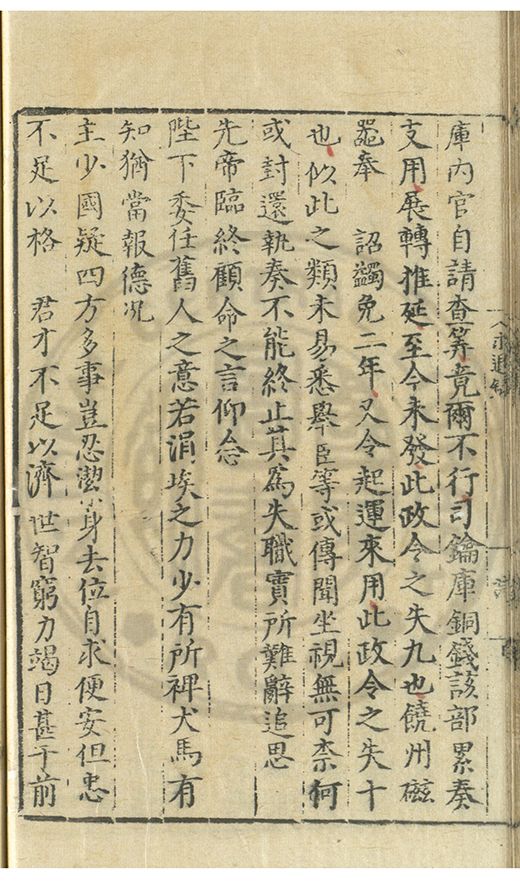 庫內官自請查筭竟爾不行司鑰庫銅錢該部累奏
支用展轉推延至今未發此政令之失九也饒州磁
噐奉　詔蠲免二年又令起運來用此政令之失十
也似此之類未易悉舉臣等或傳聞坐視無可柰何
或封還執奏不能終止其為失職實所難辭追思
先帝臨終顧命之言仰念
陛下委任舊人之意若涓埃之力少有所裨犬馬有
知猶當報德况
主少國疑四方多事豈忍潔身去位自求便安但忠
不足以格　君才不足以濟　世智窮力竭日甚于前